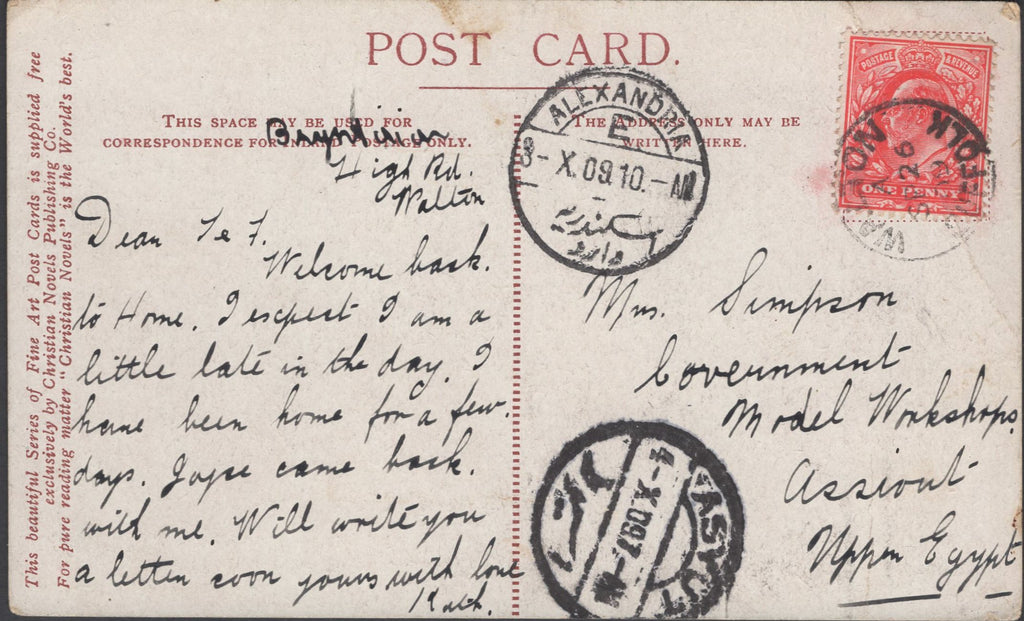 POST CARD.
THIS SPACE MAY BE USED FOR
CORRESPONDENCE FOR INLAND POSTAGE ONLY.
THE ADDRESS ONLY MAY BE
WRITTEN HERE.
This beautiful Series of Fine Art Post Cards is supplied free
exclusively by Christian Novels Publishing Co.
For pure reading matter "Christian Novels" is the World's best.
High Rd.
Walton
Dear T & F.
Welcome back.
to Home. I expect I am a
little late in the day. I
have been home for a few
days. Joyce came back.
with me. Will write you
a letter soon yours with love
Kath.
Mrs. Simpson
Government
Model Workshops.
Assiout
Upper Egypt
POSTAGE & REVENUE
ONE PENNY
ALEXANDRIA
E
3-X.09.10.-M
WALTON
26
ASYUT
4-X.097-M